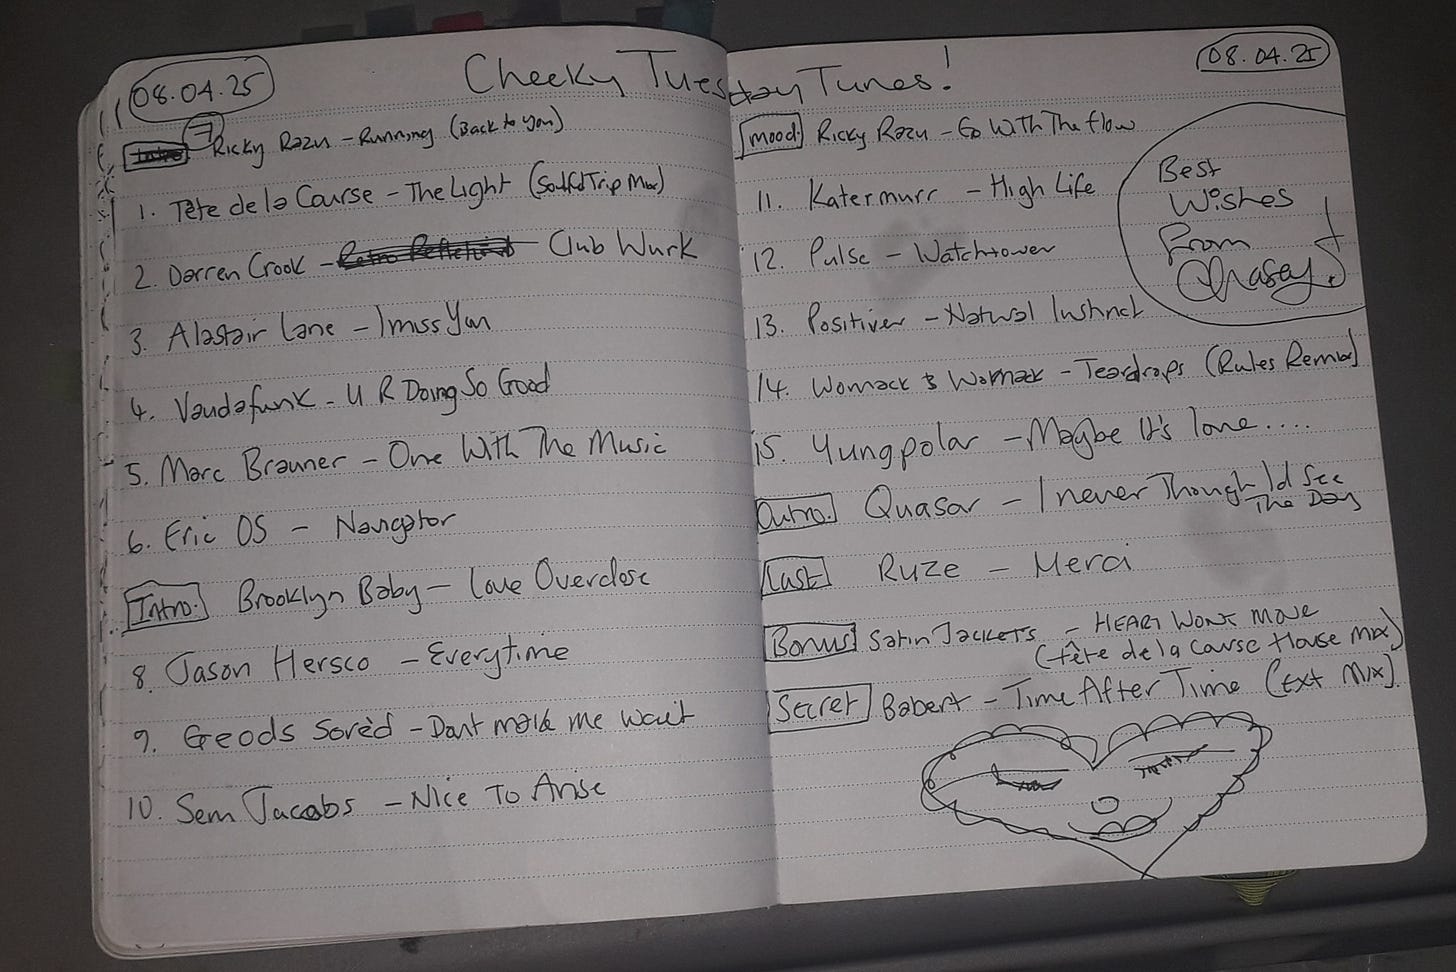 08.04.25
Cheeky Tuesday Tunes!
7 Ricky Razu - Running (Back to You)
1. Tête de la Course - The Light (Soulful Trip Mix)
2. Darren Crook - Club Wurk
3. Alastair Lane - I miss You
4. Vaudafunk - U R Doing So Good
5. Marc Brauner - One With The Music
6. Eric OS - Navigator
Intro: Brooklyn Baby - Love Overdose
8. Jason Hersco - Everytime
9. Geods Sorèd - Dont make me wait
10. Sem Jacobs - Nice To Arise
08.04.25
mood: Ricky Razu - Go With The flow
11. Katermurr - High Life
12. Pulse - Watchtower
13. Positiver - Natural Instinct
14. Womack & Womack - Teardrops (Rules Remix)
15. Yungpolar - Maybe It's love....
Outro: Quasar - I never Though I'd See
The Day
Last Ruze - Merci
Bonus Satin Jackets - HEART WONT MOVE
(tête de la course House mix)
Secret Babert - Time After Time (Ext Mix)
Best
Wishes
From
Chasey!